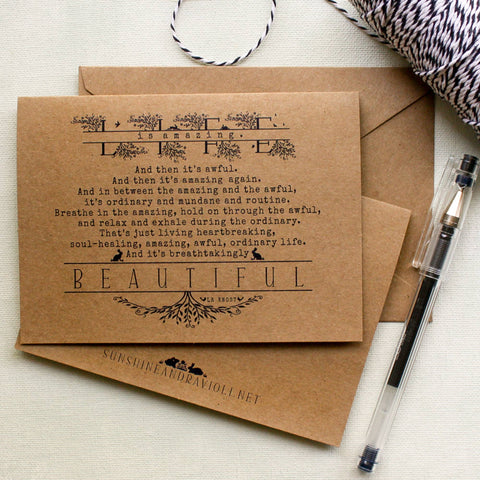 LIFE
is amazing.
And then it's awful.
And then it's amazing again.
And in between the amazing and the awful,
it's ordinary and mundane and routine.
Breathe in the amazing, hold on through the awful,
and relax and exhale during the ordinary.
That's just living heartbreaking,
soul-healing, amazing, awful, ordinary life.
And it's breathtakingly
BEAUTIFUL
LR KNOST
SUNSHINEANDRAVIOLI.NET